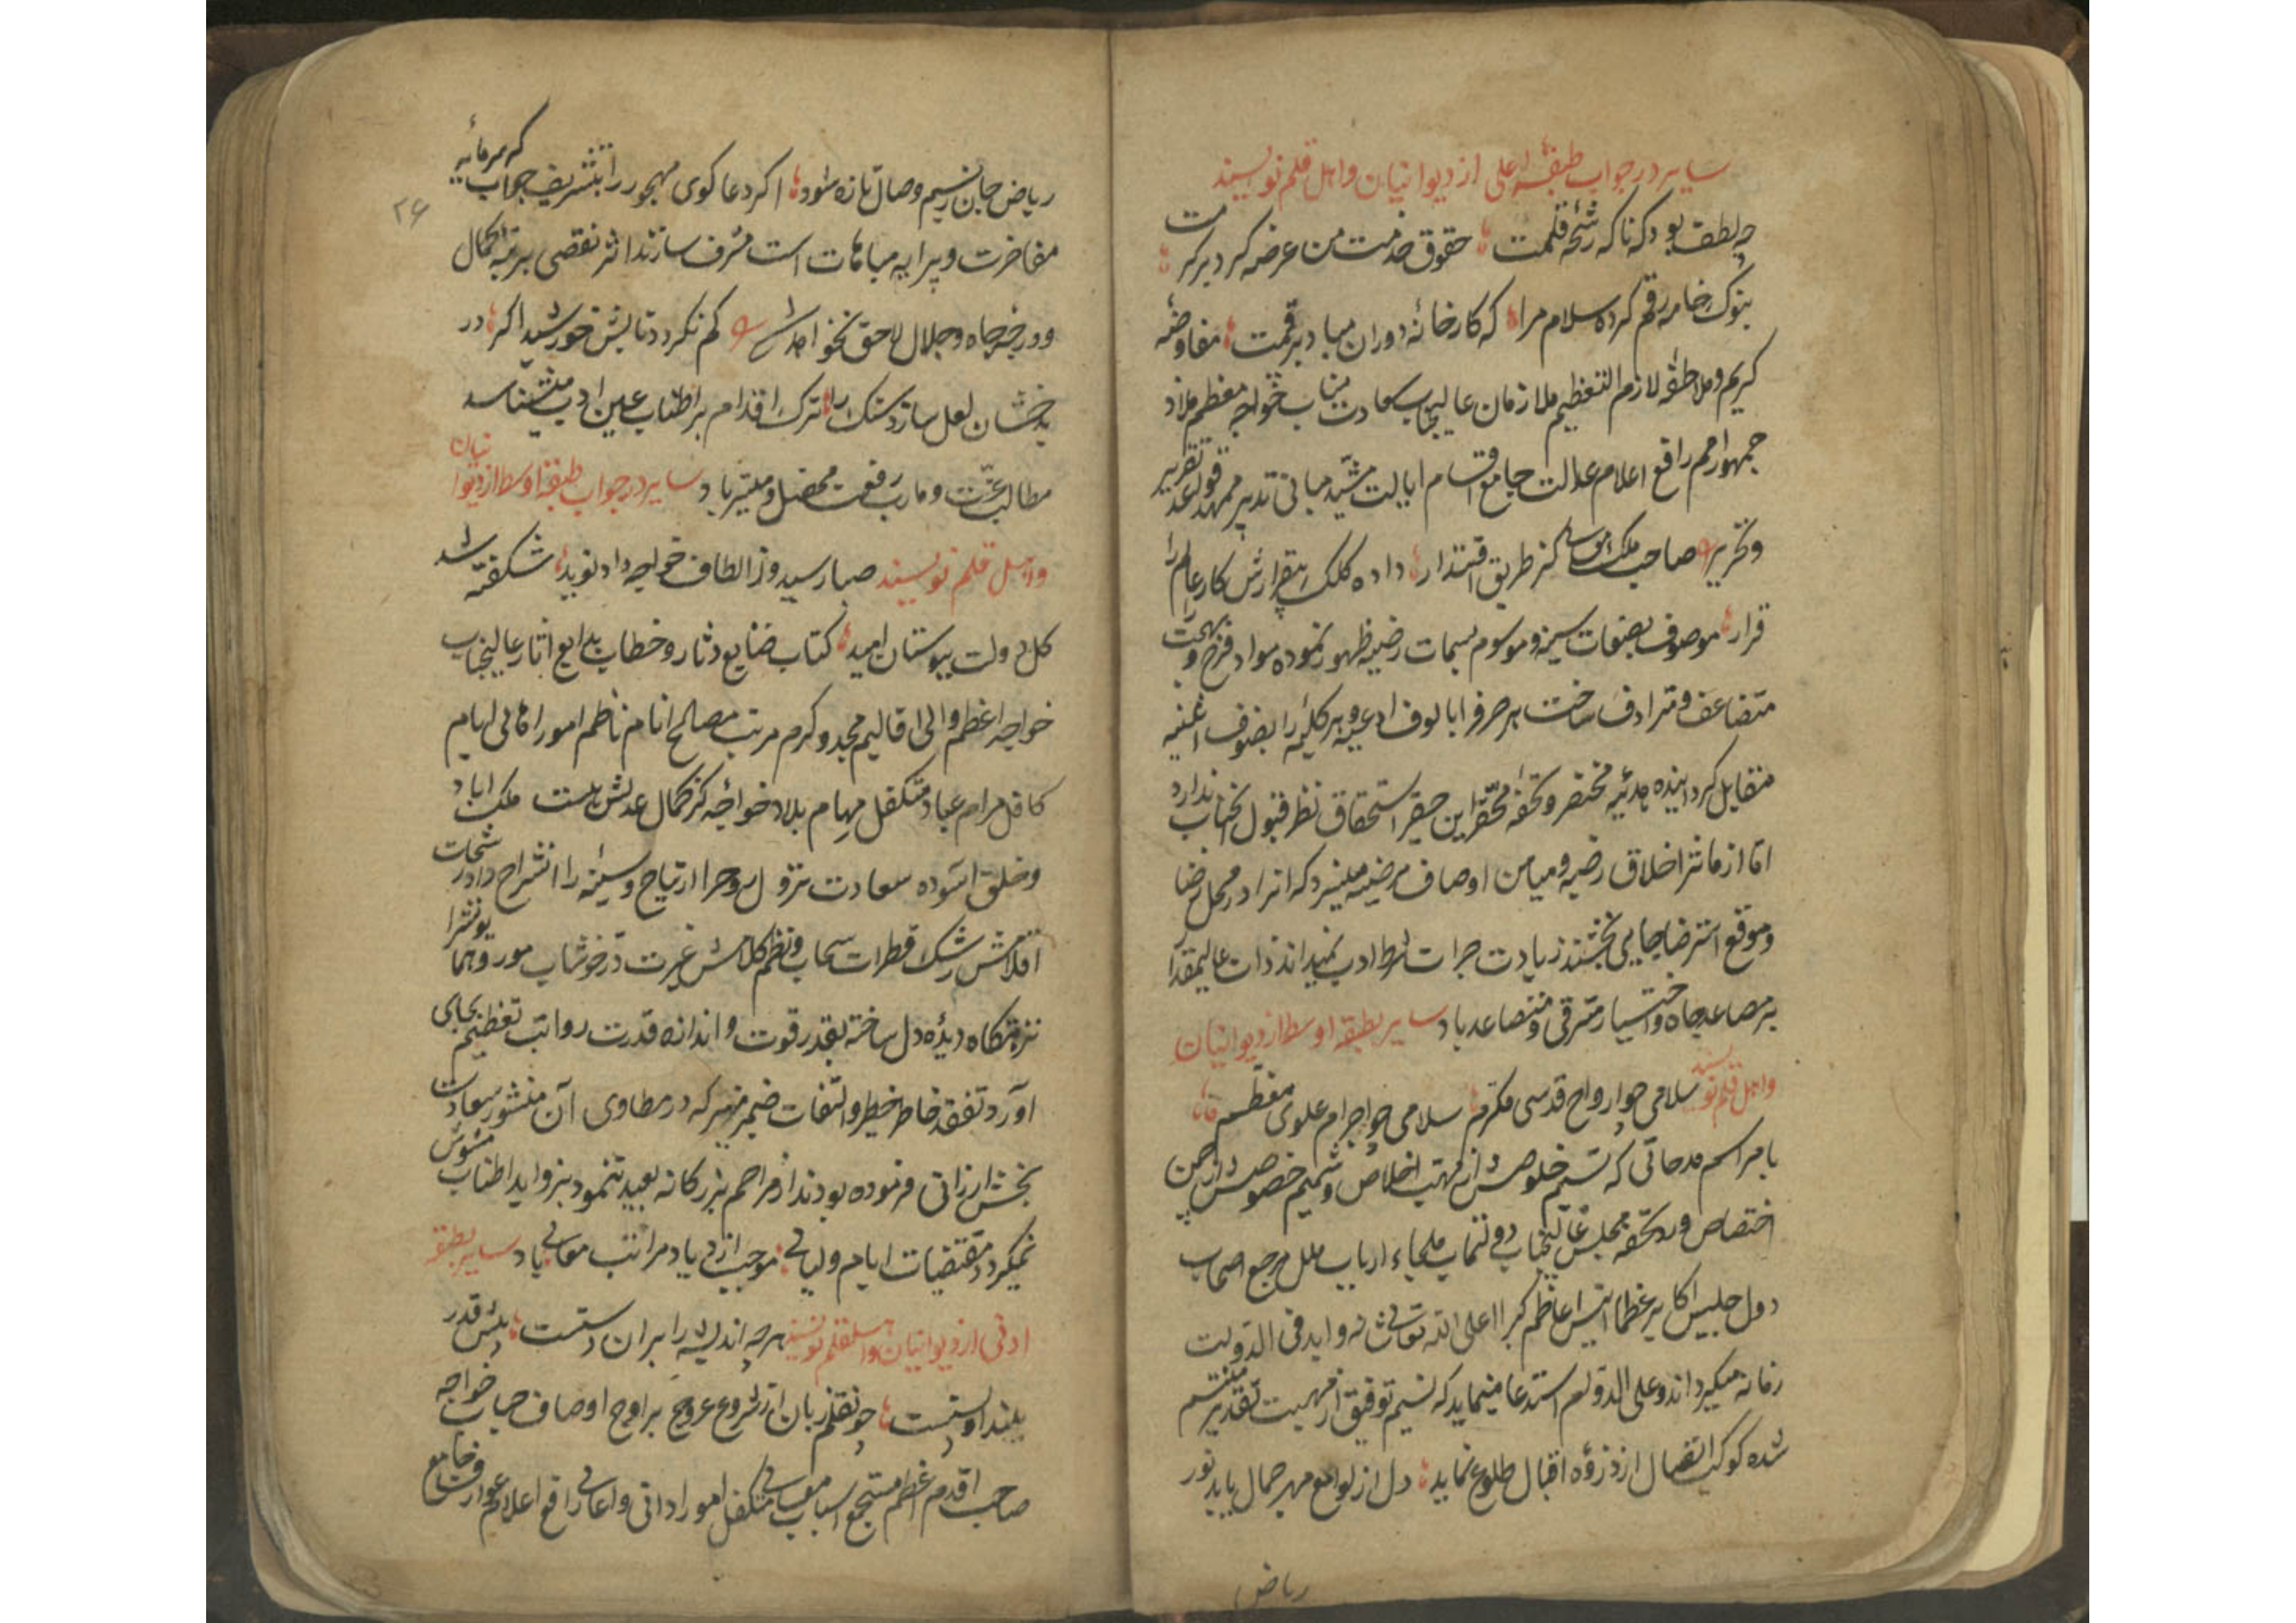 سایر در جواب طبقه اعلی از دیوانیان و اهل قلم نویسند
چه لطف بود که ناکه رشحه قلمت حقوق خدمت من عرضه کرد بر کرمت
بنوک خامه رقم کرده سلام مرا که کارخانه دوران مباد بی رقمت مفاوضه
کریم و ملاطفه لازم التعظیم ملازمان عالیجناب سعادت مناب خواجه معظم ملاذ
جمهور امم رافع اعلام عدالت جامع اقسام ایالت مشید مبانی تدبیر ممهد قواعد تقریر
و تحریر صاحب ملک کز طریق اقتدار داده کلک بیقرارش کار عالم را
قرار موصوف بصفات سنیه و موسوم بسمات رضیه ظهور نموده مواد فرح و بهجت را
متضاعف و مترادف ساخت هر حرفرا بالوف ادعیه و هر کلمه را بصنوف اثنیه
متقابل کردانیده هدیه مختصر و تحفه محقر این حقیر استحقاق نظر قبول انجناب ندارد
اما از ماثر اخلاق رضیه و میامن اوصاف مرضیه میسزد که انرا در محل رضا
و موقع استرضا جایی بخشند زیادت جرات شرط ادب نمیداند ذات عالیمقدار
بر مصاعد جاه و اختیار مترقی و متصاعد باد سایر بطبقه اوسط از دیوانیان
و اهل قلم نویسند سلامی چو ارواح قدسی مکرم سلامی چو اجرام علوی معظم
با مراسم مدحاتی که نسیم خلوصش از مهب اخلاص و شمیم خصوصش از چمن
اختصاص وزد تحفه مجلس عالیجناب دولتماب ملجاء ارباب ملل مرجع اصحاب
دول جلیس اکابر عظما انیس اعاظم کبرا اعلی الله تعالی شانه و اید فی الدولت
زمانه میکرداند و علی الدوام استدعا مینماید که نسیم توفیق از مهب تقدیر متنسم
شده کوکب اتصال از ذروه اقبال طلوع نماید دل از لوامع مهر جمال یابد نور
ریاض
ریاض جان ز نسیم وصال تازه شود اکر دعا کوی مهجور را بتشریف جواب که سرمایه
مفاخرت و پیرایه مباهات است مشرف سازند اثر نقصی بر رتبه کمال
و درجه جاه و جلال لاحق نخواهد شد کم نکردد تابش خورشید اکر در
بدخشان لعل سازد سنک را ترک اقدام بر اطناب عین ادب میشناسد
مطالب عزت و مارب رفعت محصل و میسر باد سایر در جواب طبقه اوسط از دیوانیان
و اهل قلم نویسند صبا رسید و ز الطاف خواجه داد نوید شکفته شد
کل دولت ببوستان امید کتاب صنایع دثار و خطاب بدایع اثار عالیجناب
خواجه اعظم والی اقالیم مجد و کرم مرتب مصالح انام ناظم امور اهالی ایام
کافل مرام عباد متکفل مهام بلاد خواجه کز کمال عدلش هست ملک اباد
و خلق اسوده سعادت نزول روحرا ارتیاح و سینه را انشراح داد رشحات
اقلامش رشک قطرات سحاب و نظم کلامش غیرت در خوشاب
نزهتکاه دیده دل ساخته بقدر قوت و اندازه قدرت رواتب تعظیم بجای
آورد تفقد خاطر خطیر و التفات ضمیر منیر که در مطاوی آن منشور سعادت
بخش ارزانی فرموده بودند از مراحم بزرکانه بعید ننمود بزواید اطناب مشوش
نمیکردد مقتضیات ایام و لیالی موجب ازدیاد مراتب معالی باد سایر بطبقه
ادنی از دیوانیان و اهل قلم نویسند هر چه اندیشه را بران دستست پیش قدر
بلند او پستست چو نقلم زبان از شروع عروج بر اوج اوصاف جناب خواجه
صاحب اقدم اعظم مستجمع اسباب معالی متکفل امور ادانی و اعالی رافع اعلام عوارف جامع
۲۶